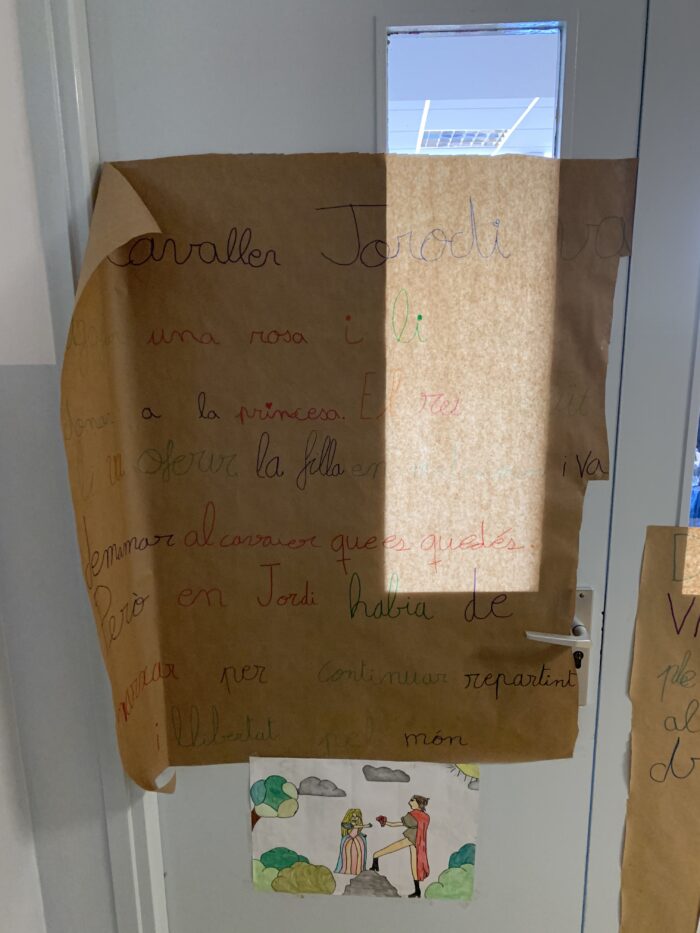 Cavaller Jorodi va
una rosa i li
donar a la princesa. El rei
li va oferir la filla en i va
demanar al cavaier que es quedés.
Però en Jordi habia de
marxar per continuar repartint
i llibertat pel món
VI
ple
al
dr